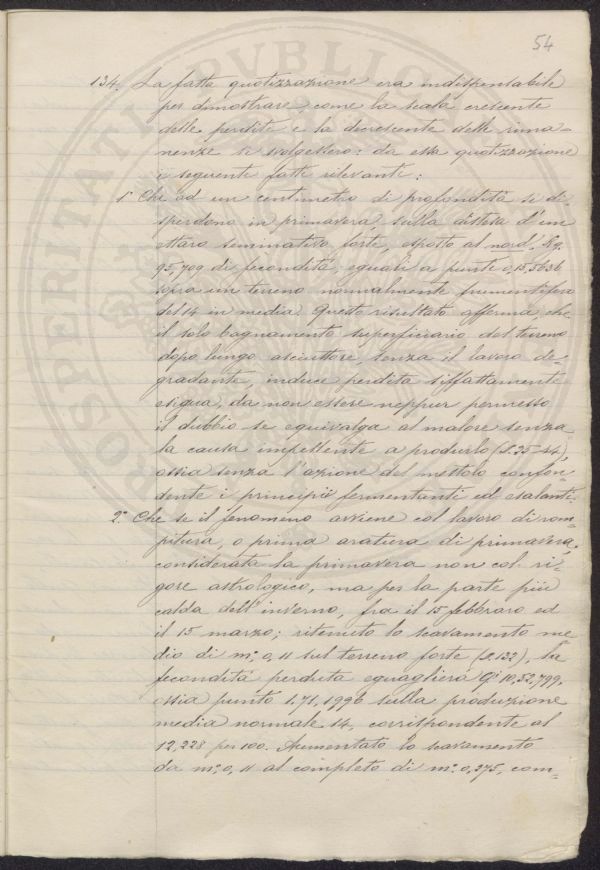 54
134. La fatta quotizzazione era indispensabile
per dimostrare come la scala crescente
delle perdite e la decrescente delle rima=
nenze si svolgessero: da essa quotizzazione
i seguenti fatti rilevanti:
1° Che ad un centimetro di profondità si di=
sperdono in primavera, sulla distesa d'un
ettaro seminativo forte, esposto al nord, Kg.
95,709 di fecondità, eguali a punte 0,15,5636
sopra un terreno normalmente frumentifero
del 14 in media. Questo risultato afferma che
il solo bagnamento superficiario del terreno
dopo lungo asciuttore, senza il lavoro de=
gradante, induce perdita siffattamente
esigua, da non essere neppur permesso
il dubbio se equivalga al malore senza
la causa impellente a produrlo (§. 25-44),
ossia senza l'azione del metodo confon=
dente i principii fermentanti ed esalanti.
2° Che se il fenomeno avviene col lavoro di rom=
pitura, o prima aratiera di primavera,
considerata la primavera non col ri=
gore astrologico, ma per la parte più
calda dell'inverno, fra il 15 febbraro ed
il 15 marzo; ritenuto lo scavamento me=
dio di m.° 0,11 sul terreno forte (§. 132), la
fecondità perduta eguaglierà Q.i 10,52,799,
ossia punto 1,71,1996 sulla produzione
media normale 14, corrispondente al
12,228 per 100. Aumentato lo scavamento
da m.° 0,11 al completo di m.° 0,275, com=
PROSPERITATI PVBLICAE